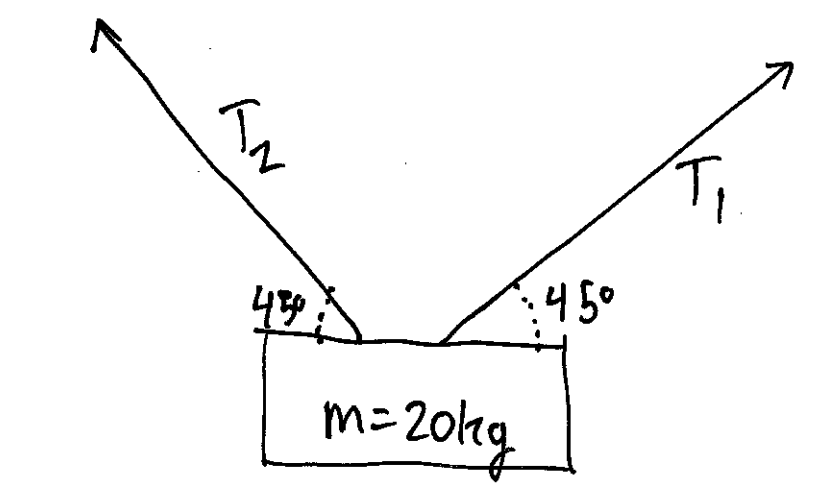 T₂
T₁
45°
45°
m=20kg